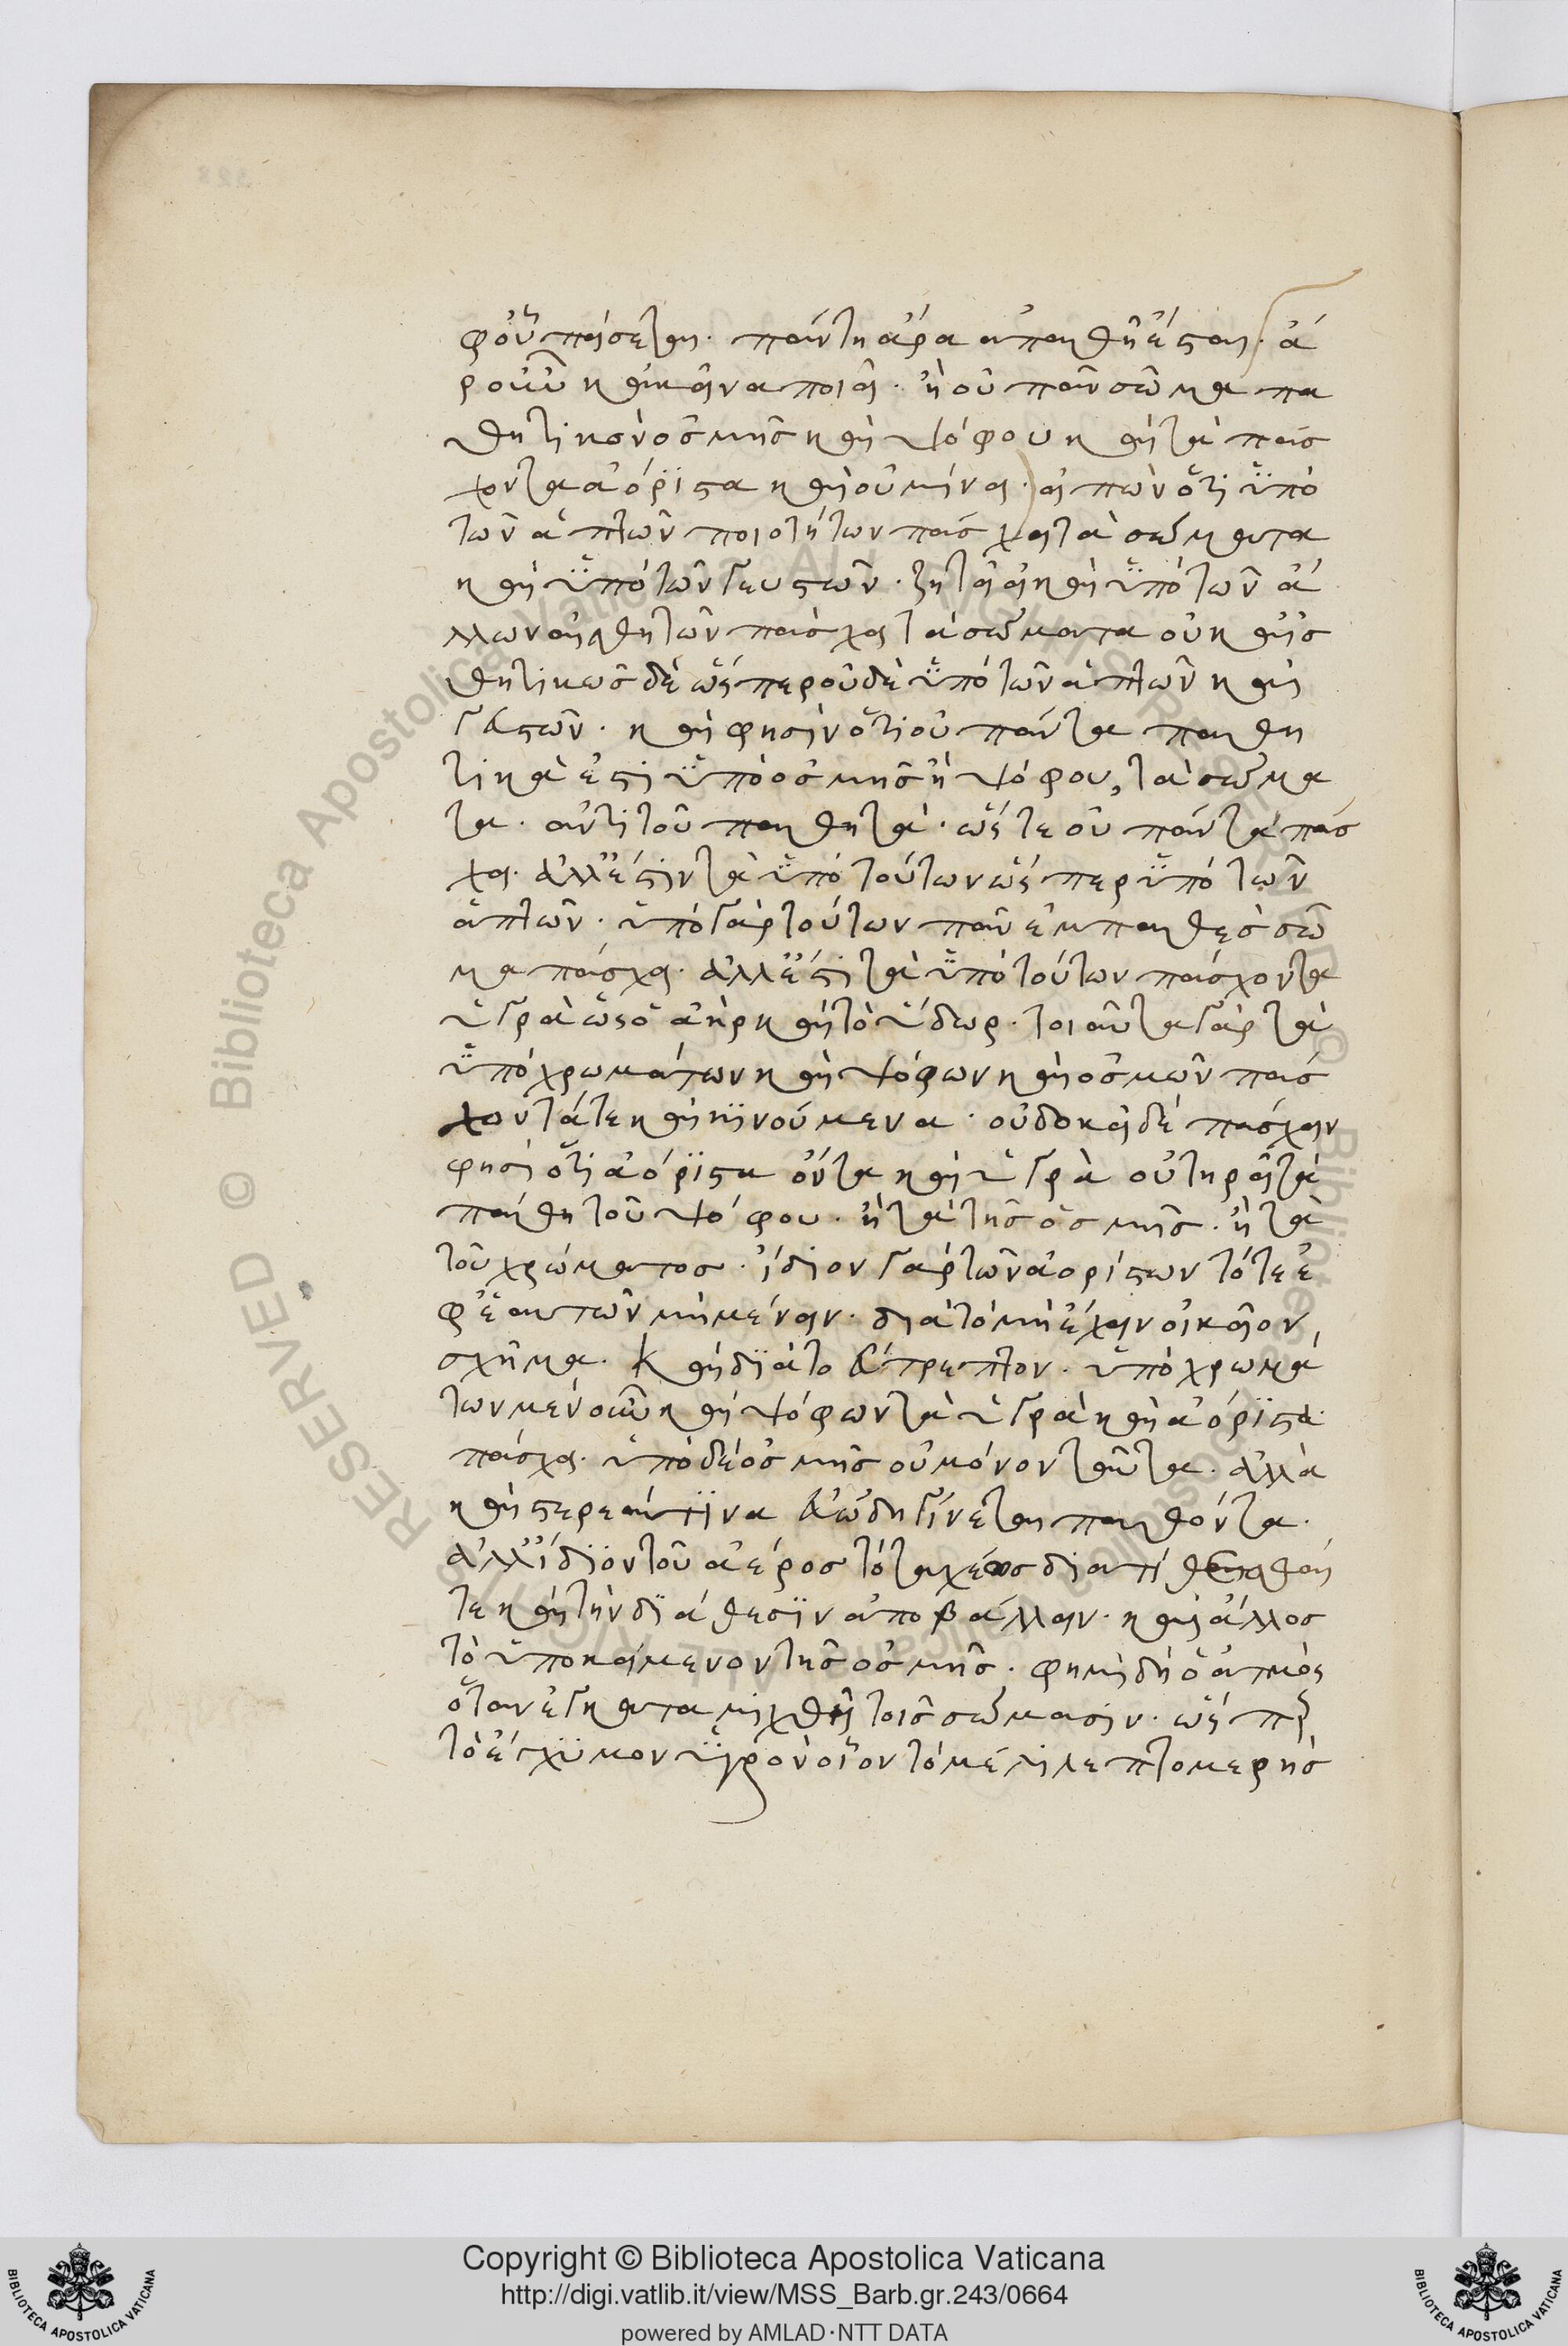 φ' οὗ πείσεται. πάντη ἄρα ἀπαθῆ ἔσται. ἆ
ρ' οὖν κἀκεῖνα ποιεῖ. ἢ οὐ πᾶν σῶμα πα
θητικὸν ὀσμῆς καὶ ψόφου καὶ τὰ πάσ
χοντα ἀόριστα καὶ οὐ μένει. εἰπὼν ὅτι ὑπὸ
τῶν ἁπτῶν ποιοτήτων πάσχει τὰ σώματα
καὶ ὑπὸ τῶν γευστῶν. ζητεῖ εἰ καὶ ὑπὸ τῶν ἄλ
λων αἰσθητῶν πάσχει τὰ σώματα οὐκ αἰσ
θητικῶς δὲ ὥσπερ οὐδὲ ὑπὸ τῶν ἁπτῶν καὶ
γευστῶν. καὶ φησὶν ὅτι οὐ πάντα παθη
τικὰ ἐστὶ ὑπὸ ὀσμῆς ἢ ψόφου, τὰ σώμα
τα. ἀντὶ τοῦ παθητά. ὥστε οὐ πάντα πάσ
χει. ἀλλ' ἔστιν τὰ ὑπὸ τούτων ὥσπερ ὑπὸ τῶν
ἁπτῶν. ὑπὸ γὰρ τούτων πᾶν ἐμπαθὲς σῶ
μα πάσχει. ἀλλ' ἔστι τὰ ὑπὸ τούτων πάσχοντα
ὑγρὰ ὡς ὁ ἀὴρ καὶ τὸ ὕδωρ. τοιαῦτα γὰρ τὰ
ὑπὸ χρωμάτων καὶ ψόφων καὶ ὀσμῶν πάσ
χοντά τε καὶ κινούμενα. οὐ δοκεῖ δὲ πάσχειν
φησὶ ὅτι ἀόριστα ὄντα καὶ ὑγρὰ οὐ τηρεῖ τὰ
πάθη τοῦ ψόφου. ἢ τὰ τῆς ὀσμῆς. ἢ τὰ
τοῦ χρώματος. ἴδιον γὰρ τῶν ἀορίστων τό τε ἐ
φ' ἑαυτῶν μὴ μένειν. διὰ τὸ μὴ ἔχειν οἰκεῖον
σχῆμα. καὶ διὰ τὸ εὔτρεπτον. ὑπὸ χρωμά
των μὲν οὖν καὶ ψόφων τὰ ὑγρὰ καὶ ἀόριστα
πάσχει. ὑπὸ δὲ ὀσμῆς οὐ μόνον ταῦτα. ἀλλὰ
καὶ στερεά τινα εὐώδη γίνεται παθόντα.
ἀλλ' ἴδιον τοῦ ἀέρος τὸ ταχέως διατίθεσθαί
τε καὶ τὴν διάθεσιν ἀποβάλλειν. καὶ ἄλλος
τὸ ὑποκείμενον τῆς ὀσμῆς. φημὶ δὴ ὁ ἀτμὸς
ὅταν ἐγκαταμιχθῇ τοῖς σώμασιν. ὥσπερ
τὸ ἔγχυμον ὑγρὸν οἷον τὸ μέλι λεπτομερὴς